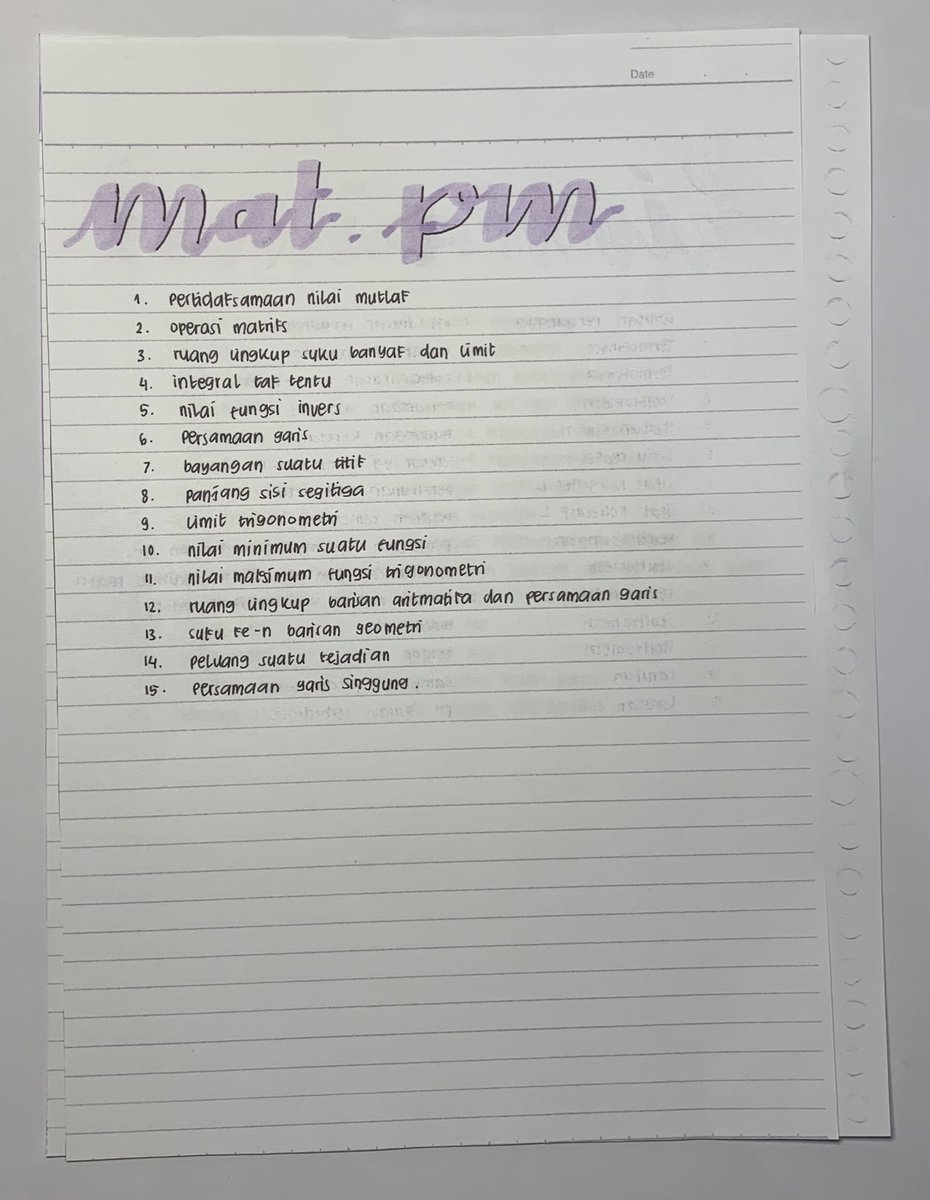 Date
mat. pm
1. pertidaksamaan nilai mutlak
2. operasi matriks
3. ruang lingkup suku banyak dan limit
4. integral tak tentu
5. nilai fungsi invers
6. persamaan garis
7. bayangan suatu titik
8. panjang sisi segitiga
9. limit trigonometri
10. nilai minimum suatu fungsi
11. nilai maksimum fungsi trigonometri
12. ruang lingkup barisan aritmatika dan persamaan garis
13. suku ke-n barisan geometri
14. peluang suatu kejadian
15. persamaan garis singgung.